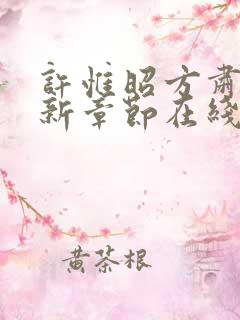 許惟昭方肅
新章節在綫
黄茶根